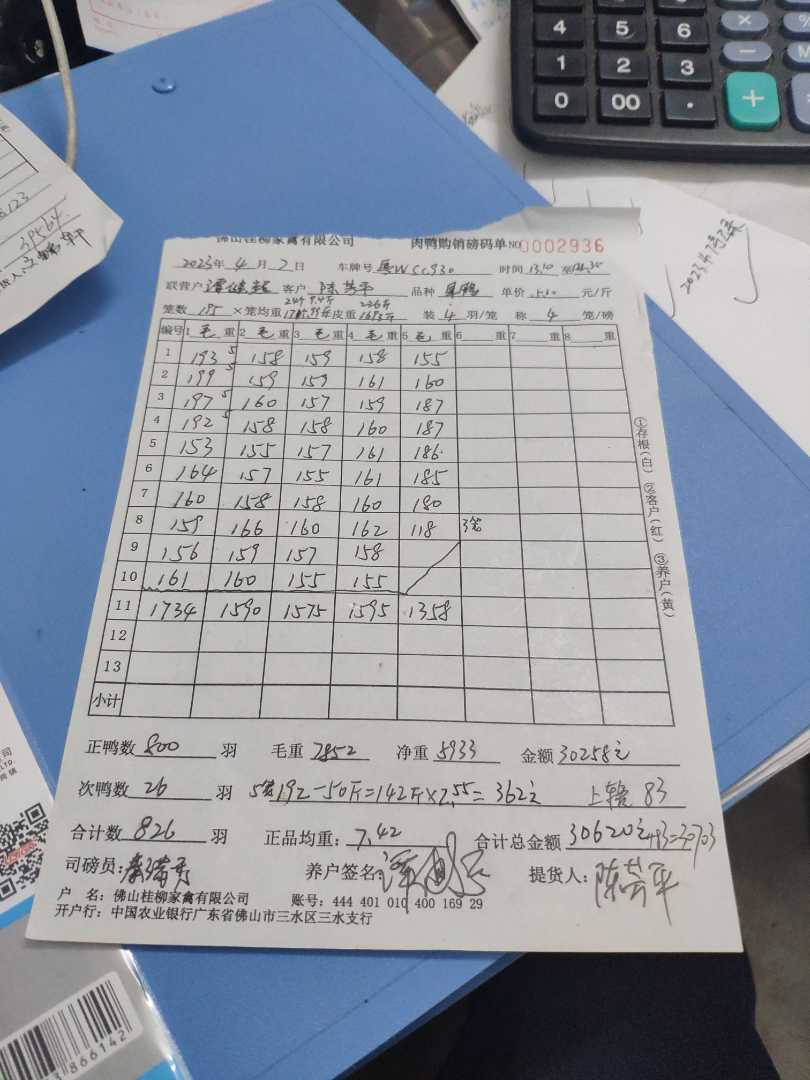 4 5 6
1 2 3
0 00 . +
佛山桂柳家禽有限公司 肉鸭购销磅码单 NO 0002936
2023年4月7日 车牌号 时间 13.10 至
联营户 客户 陈芳平 品种 单价 元/斤
笼数 195 ×笼均重 皮重 装 4 羽/笼 称 4 笼/磅
编号 1 毛 重 2 毛 重 3 毛 重 4 毛 重 5 毛 重 6 重 7 重 8 重
1 193⁵ 158 159 158 155
2 199⁵ 159 159 161 160
3 197⁵ 160 157 159 187
4 192⁵ 158 158 160 187
5 153 155 157 161 186
6 164 157 155 161 185
7 160 158 158 160 180
8 159 166 160 162 118 3笼
9 156 159 157 158
10 161 160 155 155
11 1734 1590 1575 1595 1358
12
13
小计
①存根(白) ②客户(红) ③养户(黄)
正鸭数 800 羽 毛重 7852 净重 5933 金额 30258元
次鸭数 26 羽 5笼192-50斤=142斤×2.55=362元 83
合计数 826 羽 正品均重: 7.42 合计总金额 30620元+83=30703
司磅员: 养户签名: 提货人: 陈芳平
户 名: 佛山桂柳家禽有限公司 账号: 444 401 010 400 169 29
开户行: 中国农业银行广东省佛山市三水区三水支行
3 866142